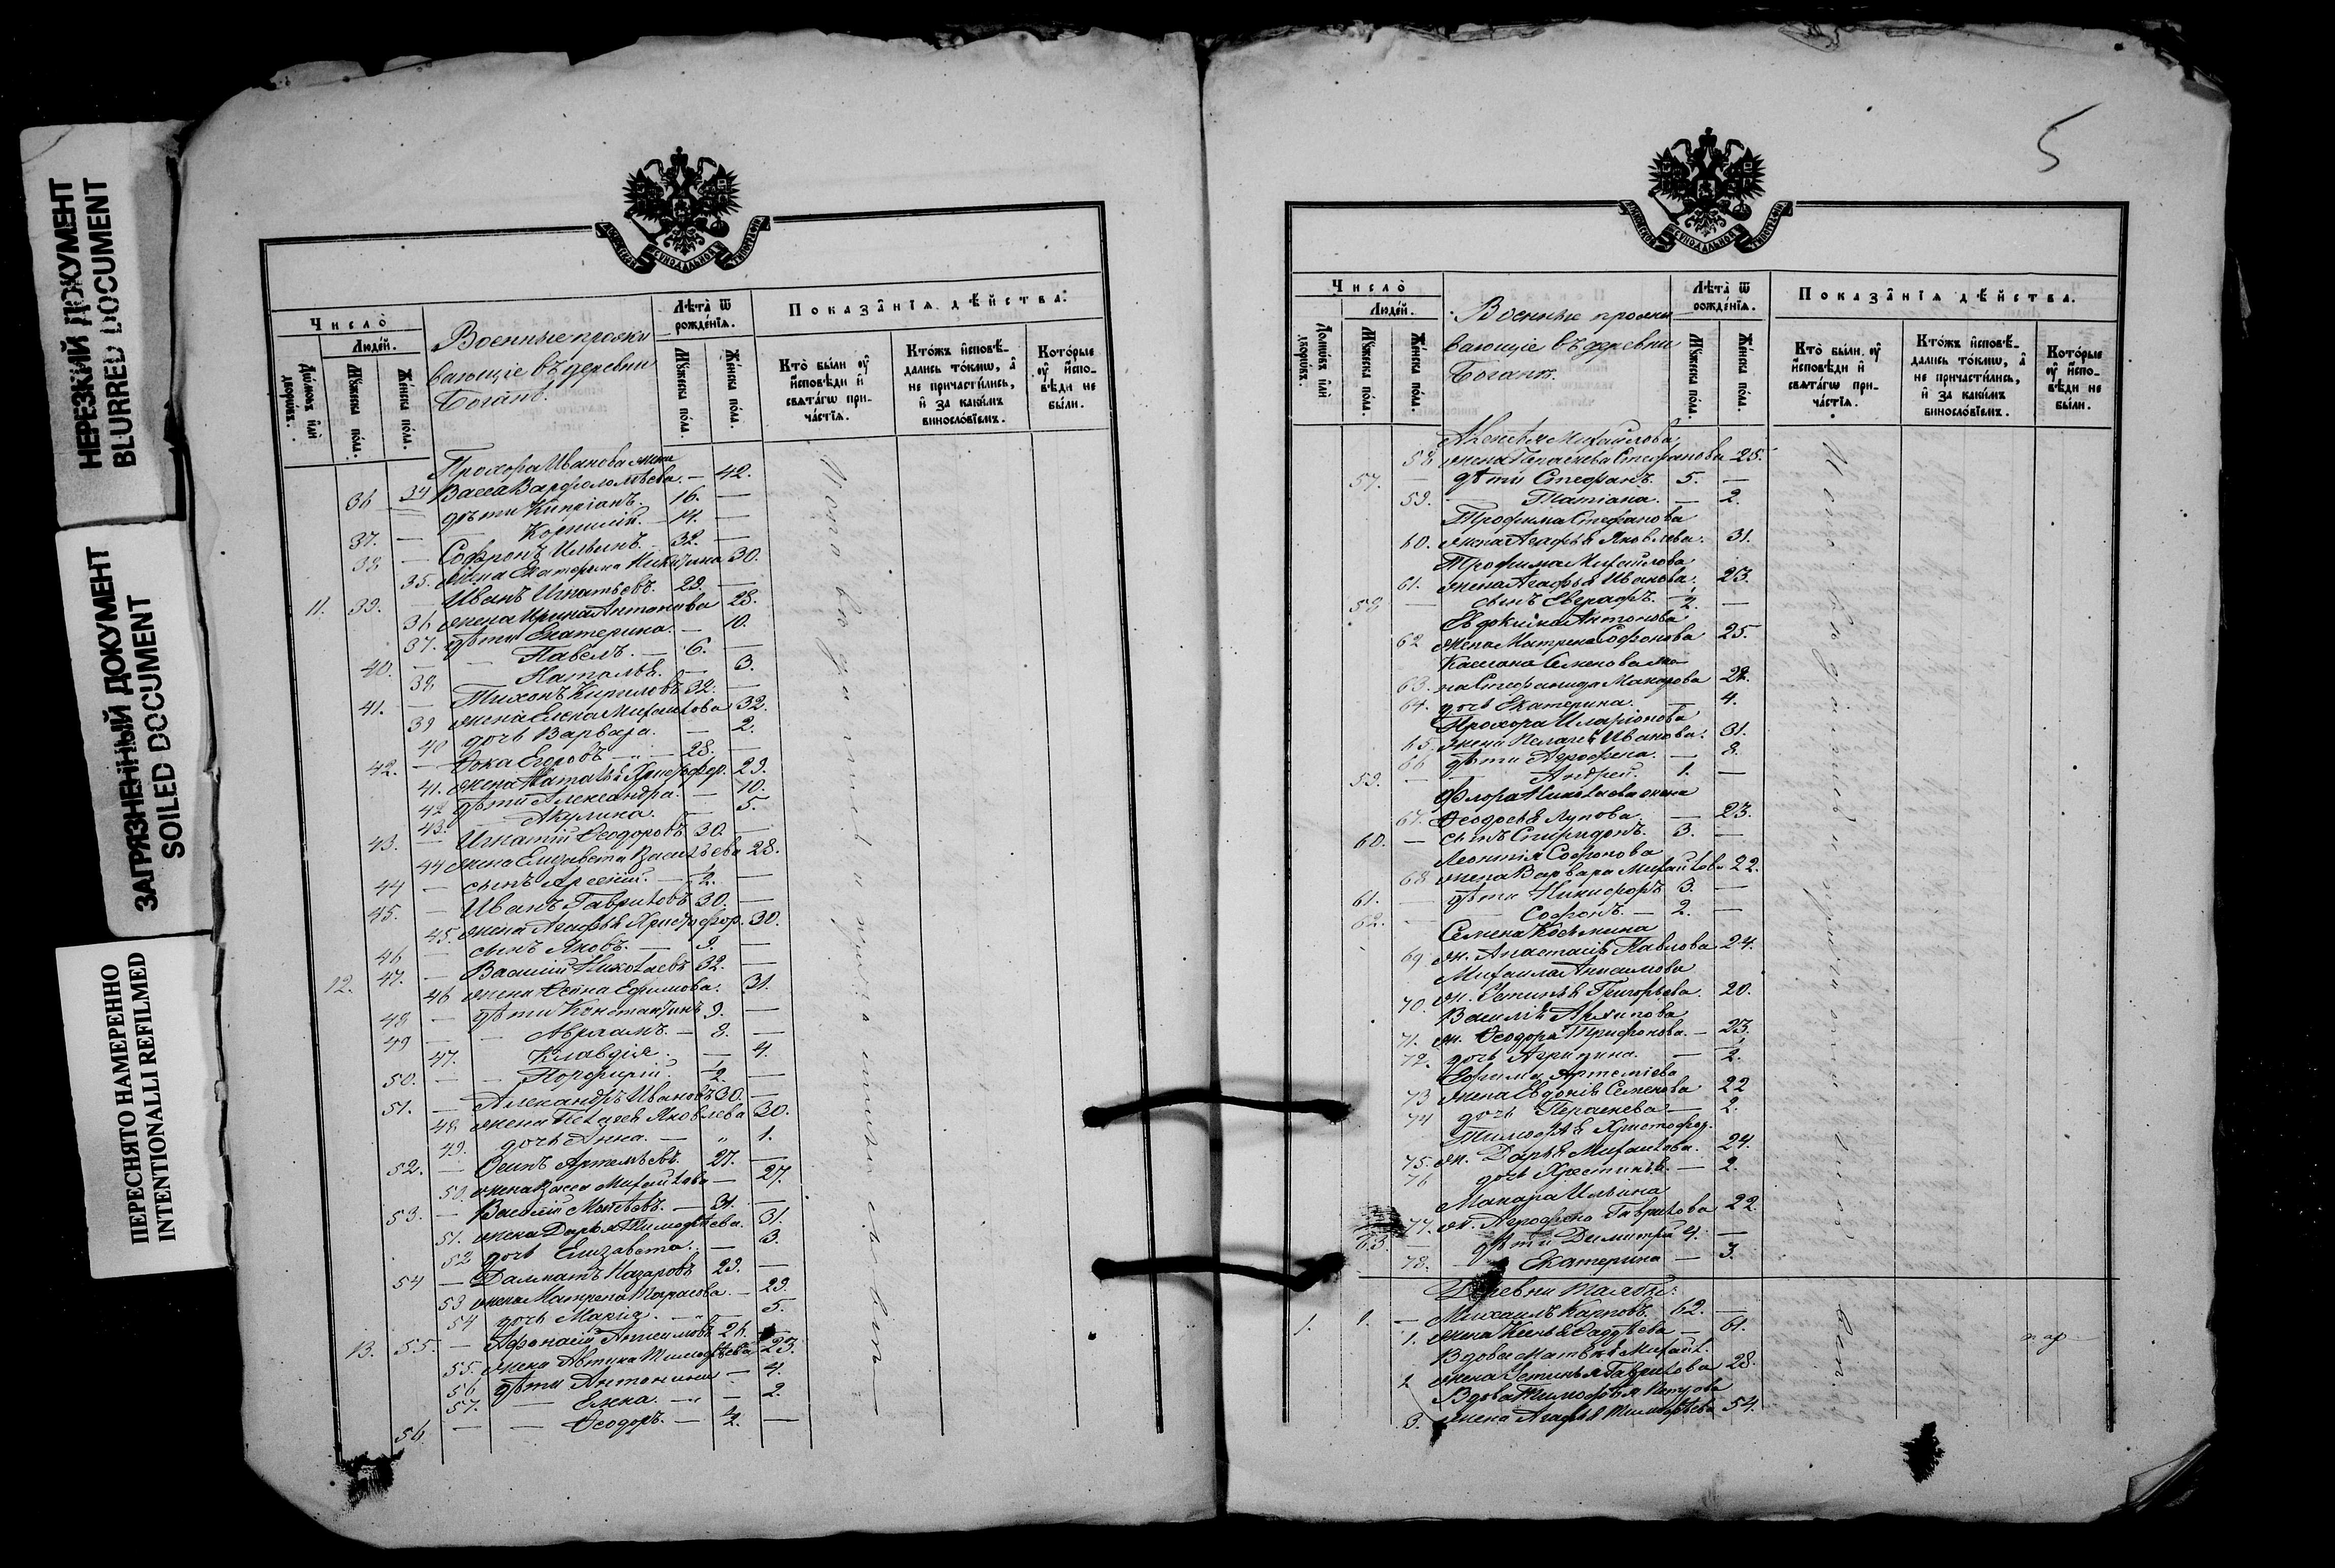 НЕРЕЗКИЙ ДОКУМЕНТ
BLURRED DOCUMENT
ЗАГРЯЗНЕННЫЙ ДОКУМЕНТ
SOILED DOCUMENT
ПЕРЕСНЯТО НАМЕРЕННО
INTENTIONALLI REFILMED
Число̀
Людей.
Домовъ или дворовъ.
Мужеска пола.
Женска пола.
Военные прожи
вающіе въ деревни
Богатъ.
Лѣта̀ ѿ рожденїѧ.
Мужеска пола.
Женска пола.
Показанїѧ дѣйства.
Кто̀ были оу исповѣди и свѧтагѡ причастїѧ.
Ктожъ исповѣдались токмѡ, а не причастились, и за какимъ винословїемъ.
Которые оу исповѣди не были.
Прохора Иванова жена
34 Васса Варфоломѣева. — 42.
36 — дѣти Кипріанъ. 16. —
37. — Корнилій. 14. —
38 — Софронъ Ильинъ. 32. —
35. жена Екатерина Никитина 30.
11. 39. — Иванъ Игнатьевъ. 29. —
36 жена Ирина Антонова 28.
37. дѣти Екатерина. — 10.
40. — Павелъ. — 6. —
38 Наталья. — 3.
41. — Тихонъ Кириловъ 32. —
39 жена Елена Михайлова 32.
40 дочь Варвара. — 2.
42. — Фока Егоровъ — 28. —
41. жена Наталья Христофор. 29.
42 дѣти Александра. — 10.
43. Акулина. — 5.
43. — Игнатій Ѳеодоровъ 30. —
44 жена Елизавета Васильева 28.
44 — сынъ Арсеній. — 2. —
45. — Иванъ Гавриловъ 30. —
45. жена Агафья Христофор. 30.
46 — сынъ Яковъ. — 9. —
12. 47. — Василій Николаевъ 32. —
46 жена Ѳекла Ефимова. 31.
48 — дѣти Константинъ 9. —
49 — Авраамъ. — 8. —
47. Клавдія. — 4.
50. — Порфирій. —
51. — Александръ Ивановъ 30. —
48 жена Пелагея Яковлева 30.
49. дочь Анна. — „ 1.
52. — Осипъ Артемьевъ. 27. —
50. жена Васса Михайлова — 27.
53. — Василій Моисѣевъ. — 31. —
51. жена Дарья Тимофѣева. 31.
52 дочь Елизавета. — 3.
54 — Далматъ Назаровъ 29. —
53 жена Матрена Тарасова. — 29.
54 дочь Марія. — 5.
13. 55. — Афанасій Анисимовъ 26.
55. жена Тимофѣева 23.
56 дѣти Антонина — 4.
57. — Елена. — 2.
56. — Ѳеодоръ. —
5
Число̀
Людей.
Домовъ или дворовъ.
Мужеска пола.
Женска пола.
Военные прожи
вающіе въ деревни
Богатъ.
Лѣта̀ ѿ рожденїѧ.
Мужеска пола.
Женска пола.
Показанїѧ дѣйства.
Кто̀ были оу исповѣди и свѧтагѡ причастїѧ.
Ктожъ исповѣдались токмѡ, а не причастились, и за какимъ винословїемъ.
Которые оу исповѣди не были.
Алексѣя Михайлова
58 жена Параскева Стефанова 25.
57. — дѣти Стефанъ. 5. —
59. Татіана. — 2.
Трофима Стефанова
60. жена Агафья Яковлева. 31.
Трофима Михайлова
61. жена Агафья Иванова. 23.
58 — сынъ Евграфъ. —
Евдокима Антонова
62 жена Матрена Софонова 25.
Кассіана Семенова же
63. на Стефанида Макарова 28.
64. дочь Екатерина. — 4.
Прохора Иларіонова
65. жена Пелагея Иванова. 31.
66 дѣти Агрофена. — 8.
59. — Андрей. 1. —
Флора Николаева жена
67. Ѳеодосья Лупова. — 23.
60. — сынъ Спиридонъ. 3. —
Леонтія Софонова
68 жена Варвара Михайлова 22.
61. — дѣти Никифоръ 3. —
62. — Софонъ. — 2. —
Семена Косьмина
69 ж. Анастасія Павлова 24.
Михаила Анисимова
70. ж. Устинья Григорьева. 20.
Василія Архипова
71. ж. Ѳеодора Трифонова. — 23.
72. дочь Агрипина. —
Ефима Артеміева
73 жена Евдокія Семенова 22
74 дочь Параскева — 2.
Тимофѣя Христофор.
75. ж. Дарья Михайлова. 24.
76 дочь Христина. — 2.
Макара Ильина
77. ж. Агрофена Гаврилова 22.
63. — дѣти Димитрій 4. —
78. — Екатерина — 3.
Деревни
1. 1. — Михаилъ Карповъ. 62. —
1. жена Ксенья Ѳаддѣева — 61.
Вдова Матвѣя Михайл.
2 жена Устинья Гаврилова 28.
Вдова Тимофѣя Петрова
3. жена Агафья Тимофѣева 54.